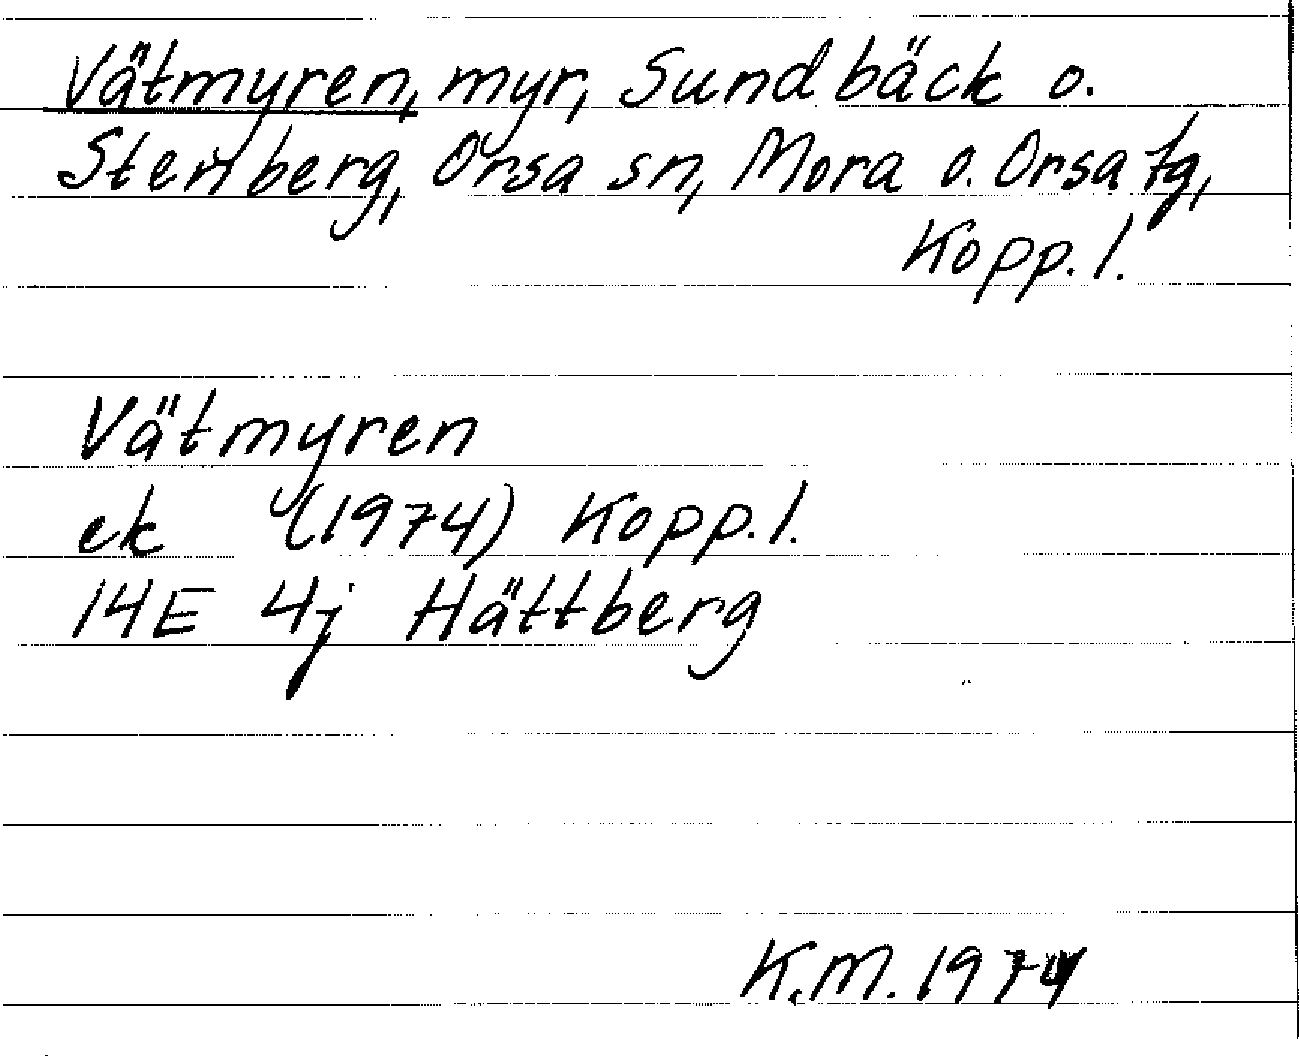 Vätmyren, myr, Sundbäck o.
Stenberg, Orsa sn, Mora o. Orsa tg,
Kopp. l.
Vätmyren
ek (1974) Kopp. l.
14E 4j Hättberg
K.M. 1974